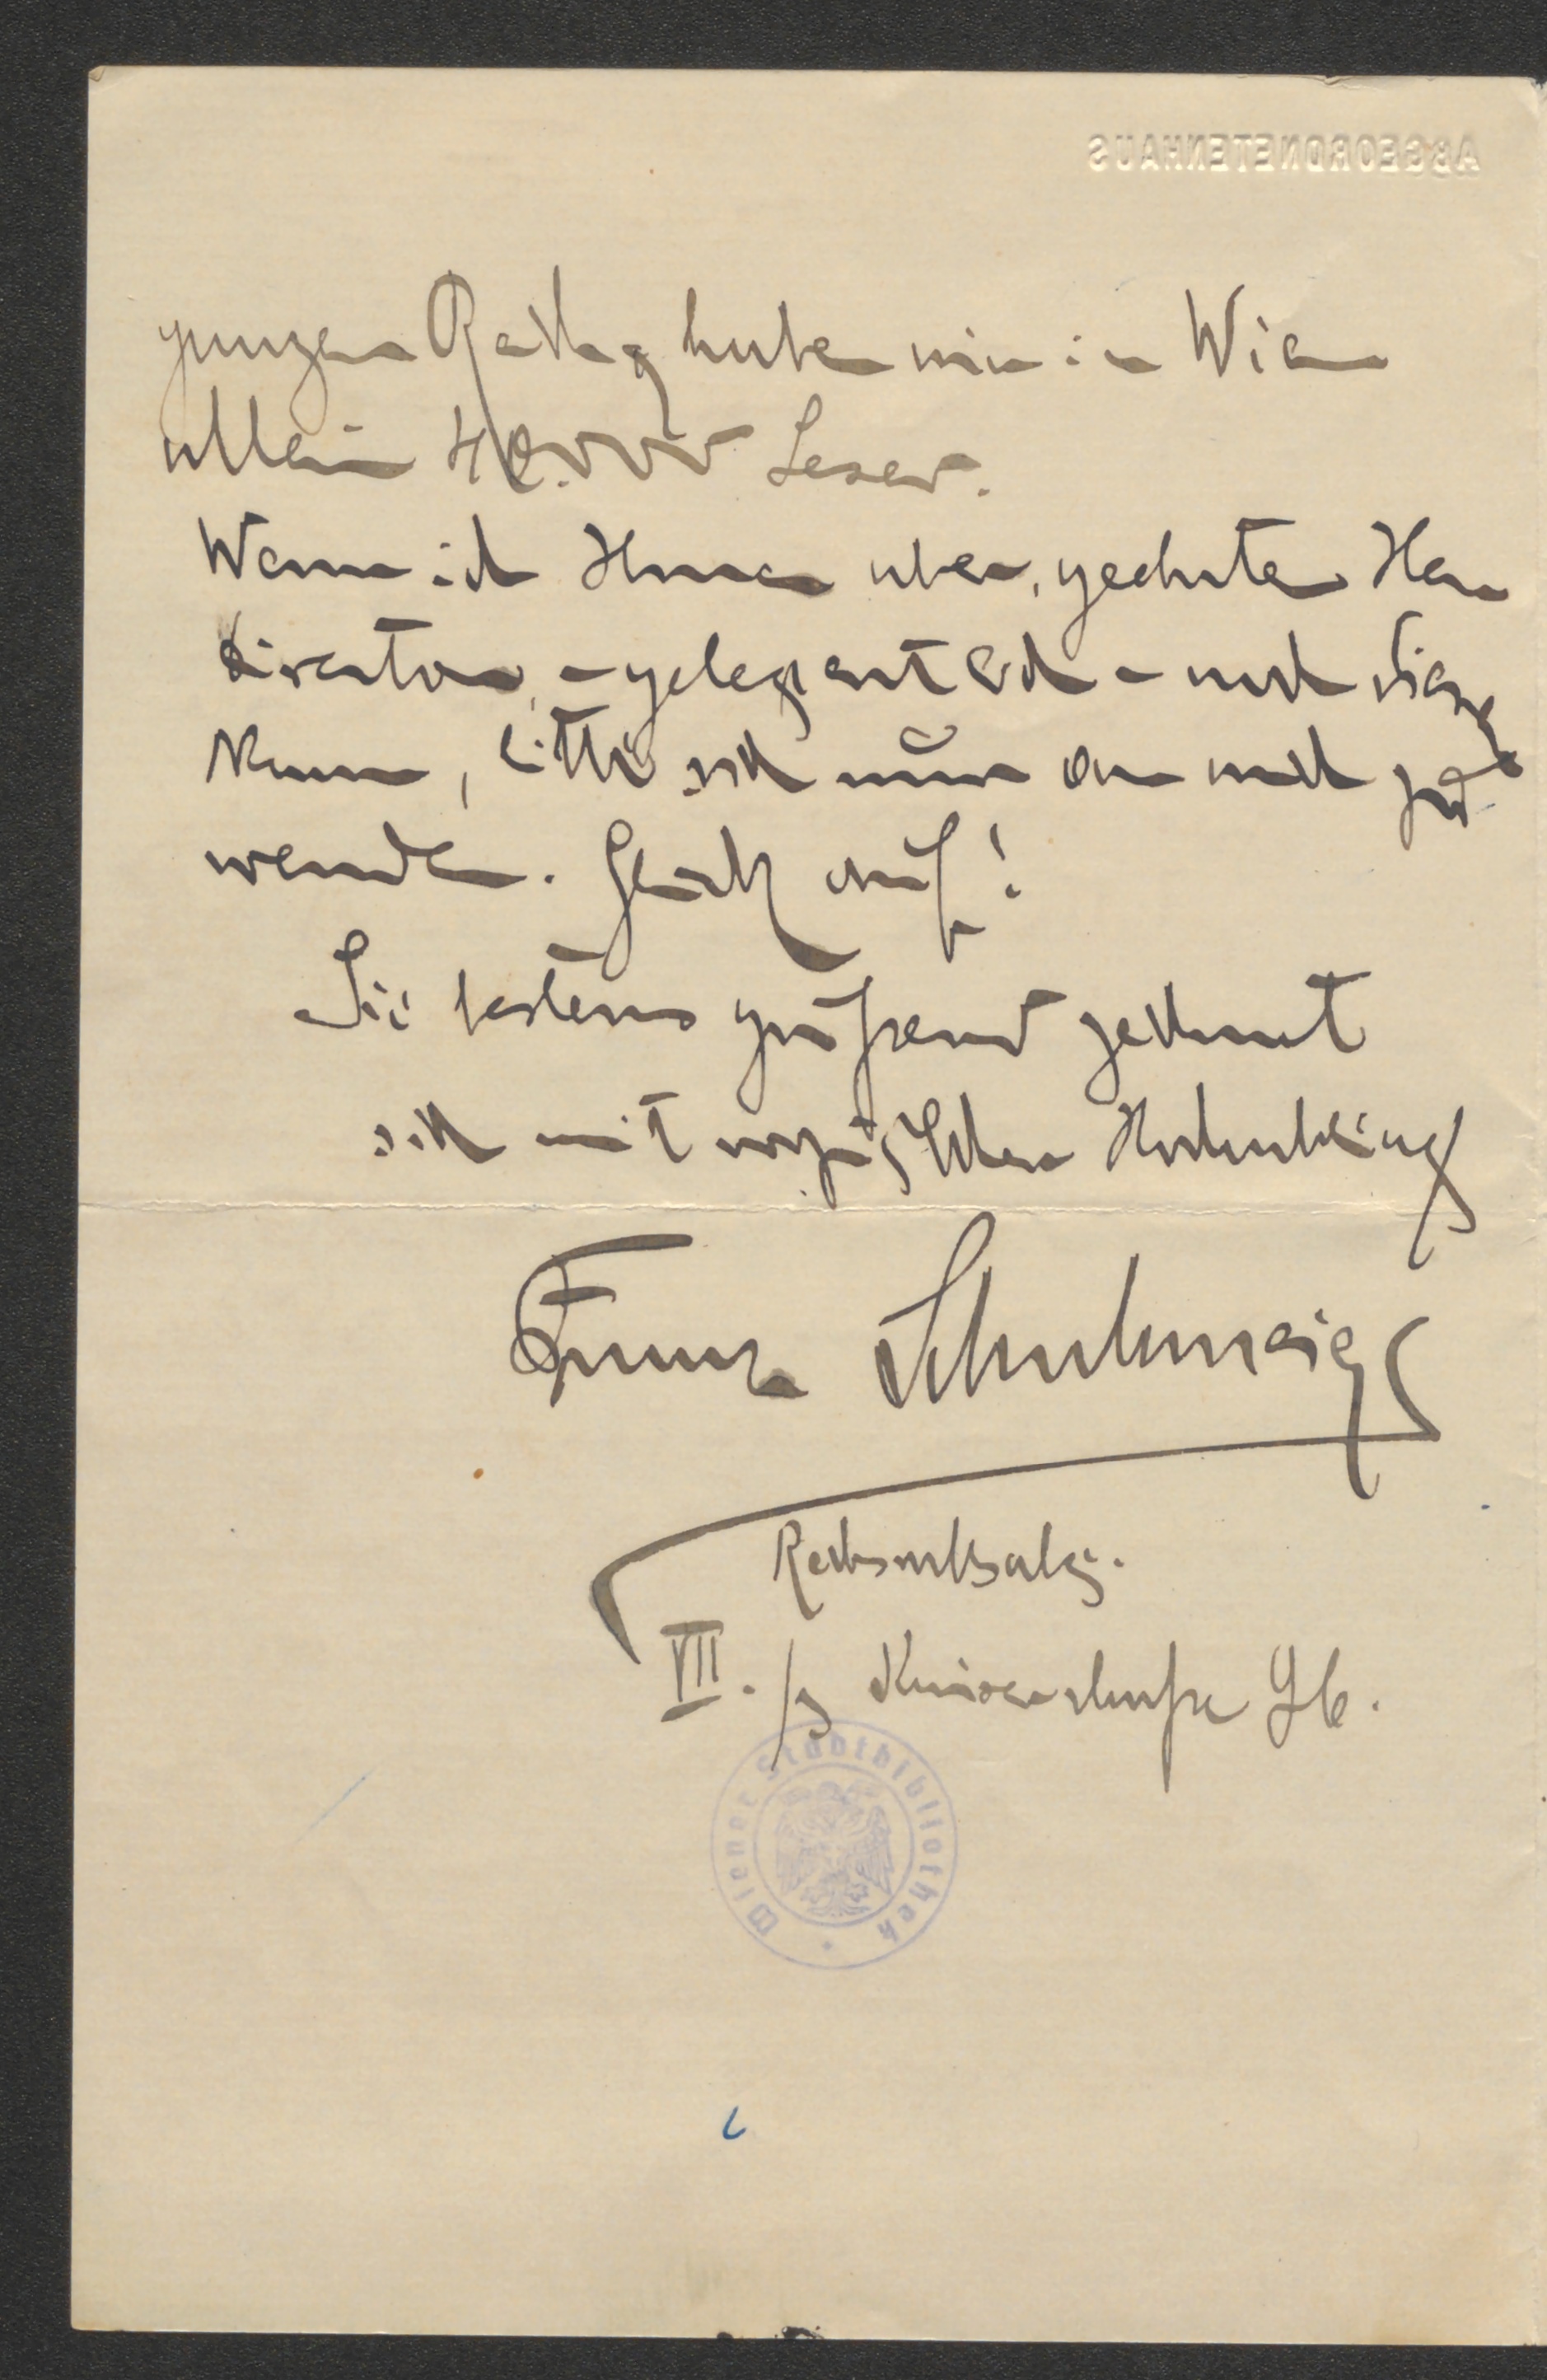 ABGEORDNETENHAUS
ganzen Reihe haben wir in Wien
allein 40.000 Leser.
Wenn ich Ihnen aber, geehrter Herr
Direktor, – gelegentlich – noch dienen
kann, bitte sich nur an mich zu
wenden. Glück auf!
Sie bestens grüßend zeichnet
sich mit vorzüglicher Hochachtung
Franz Schuhmeier
Reichsratsabg.
VII./3 Kaiserstraße
Wiener Stadtbibliothek